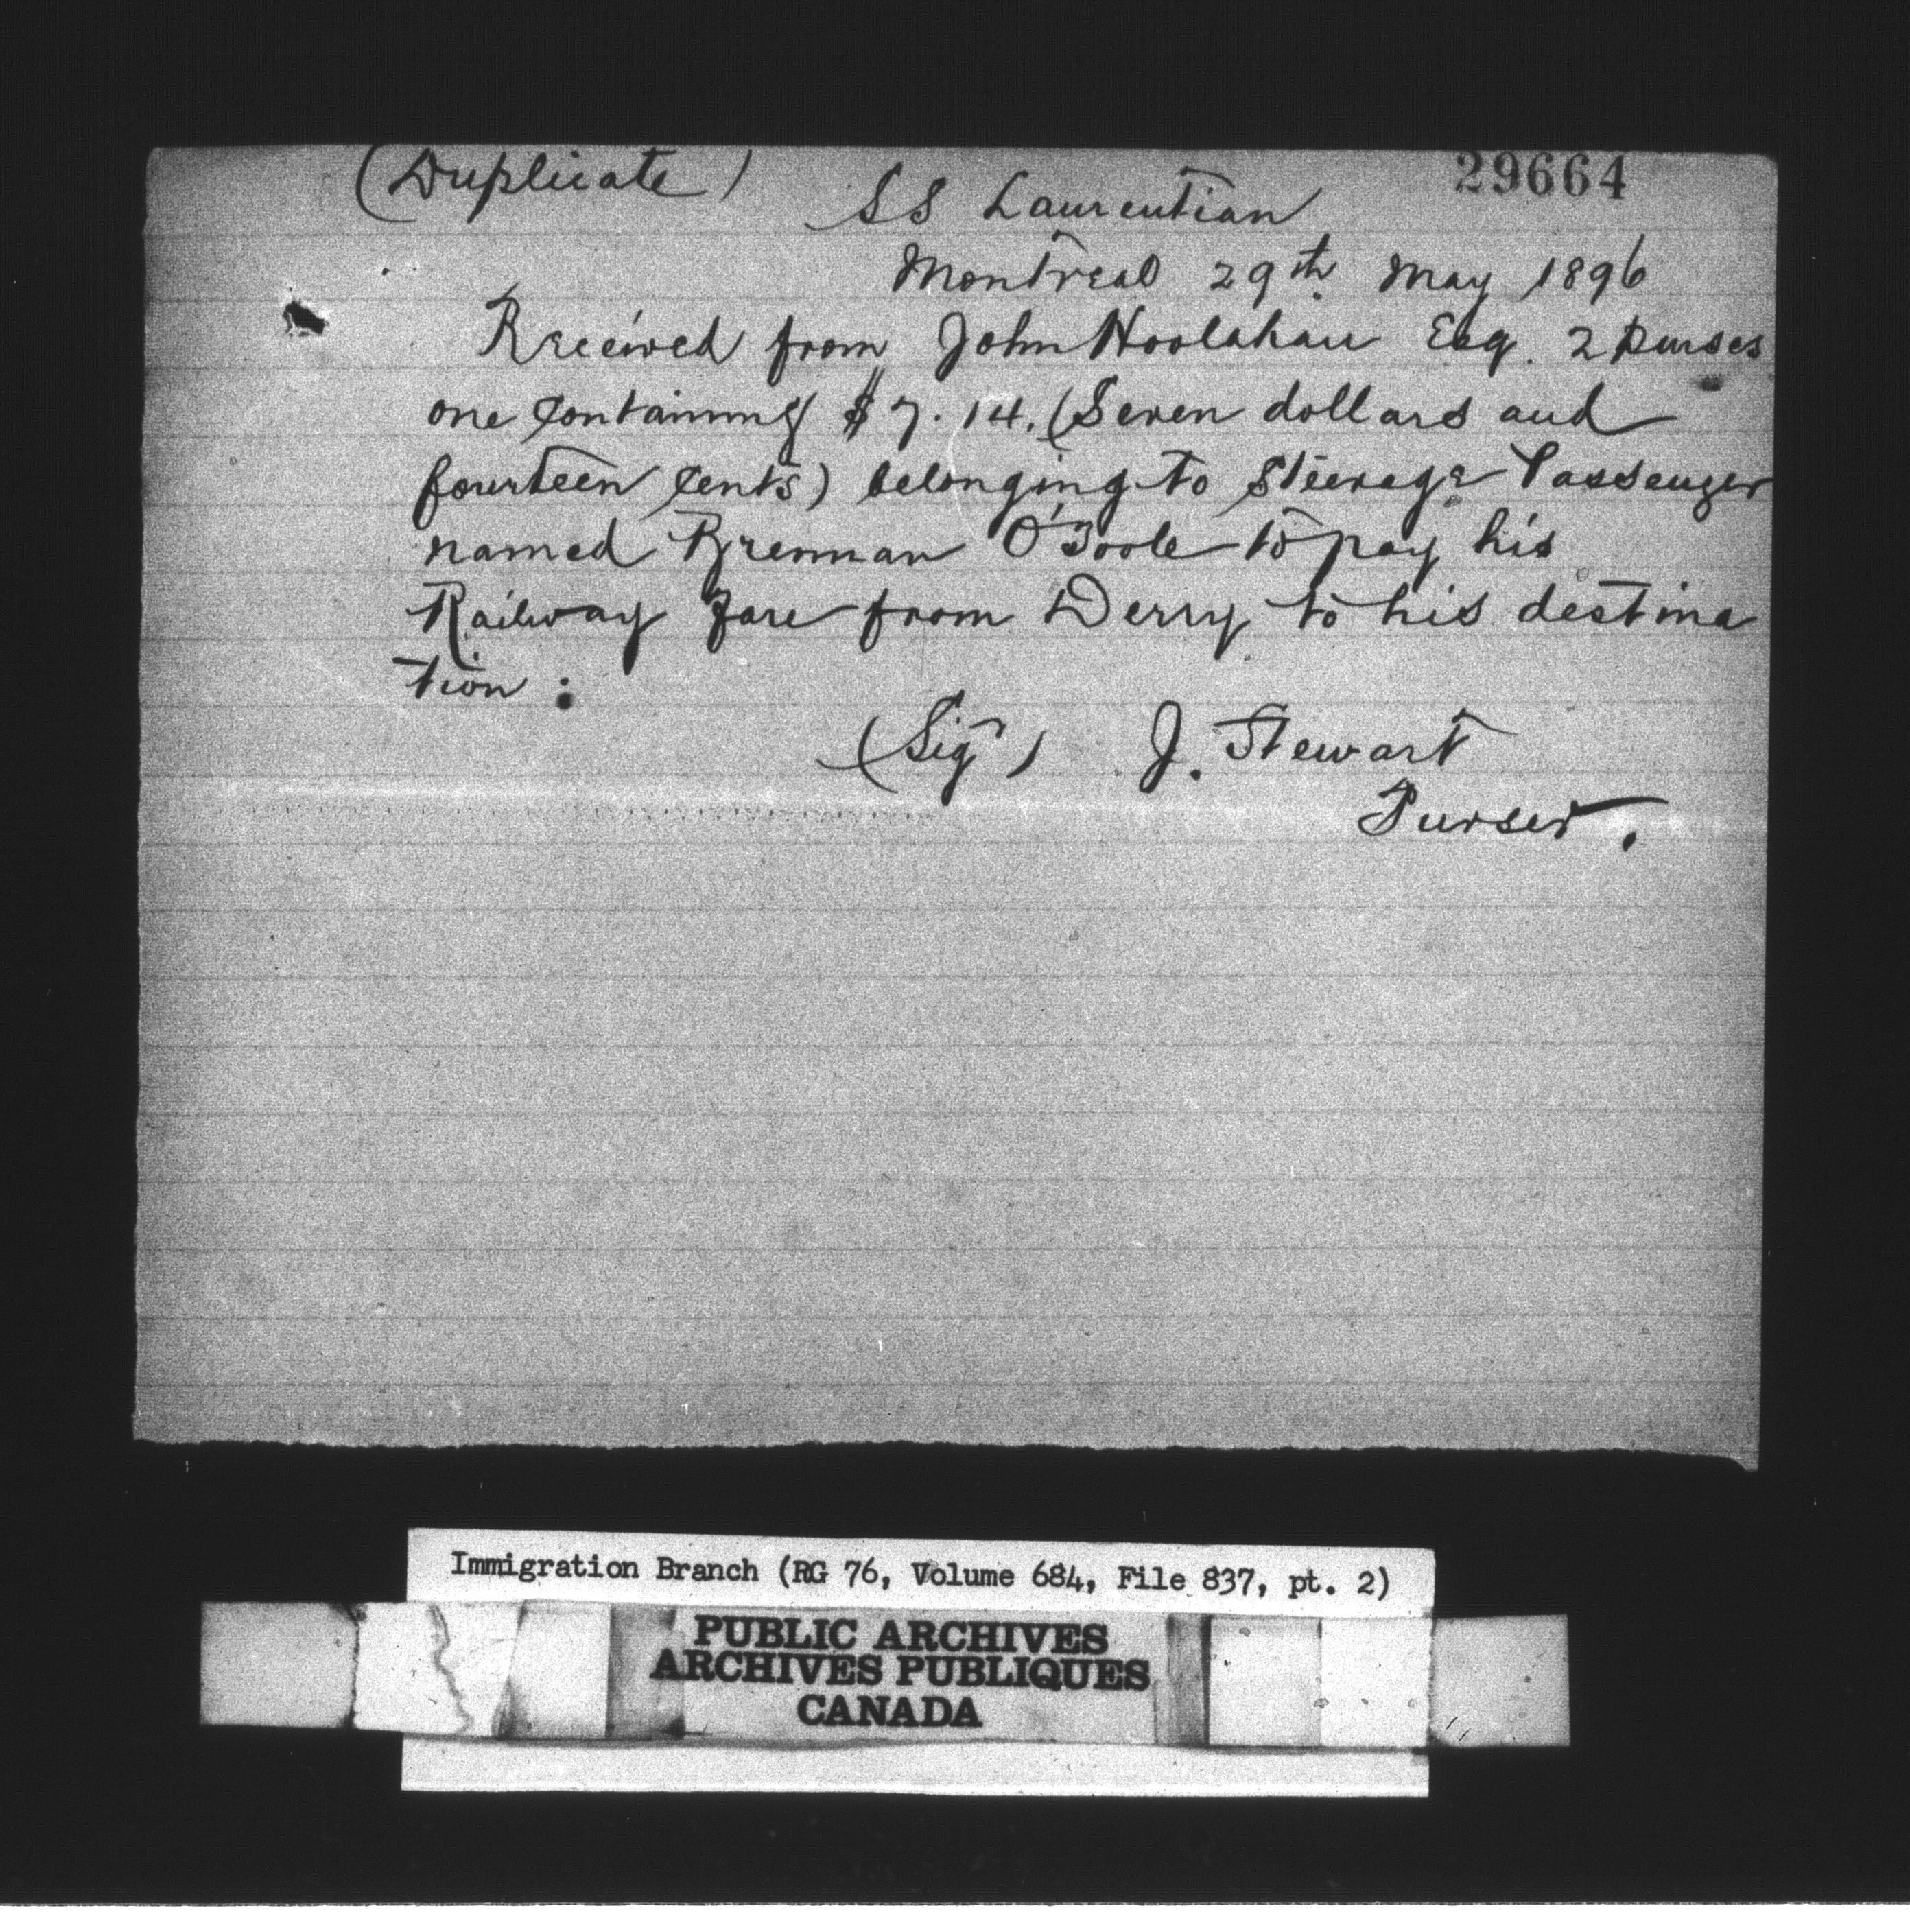 (Duplicate)
29664
SS Laurentian
Montreal 29th May 1896
Received from John Hoolahan Esq. 2 Purses
one containing $7.14. (Seven dollars and
fourteen cents) belonging to Steerage Passenger
named Brennan O'Toole to pay his
Railway Fare from Derry to his destina
tion :
(Sig) J. Stewart
Purser.
Immigration Branch (RG 76, Volume 684, File 837, pt. 2)
PUBLIC ARCHIVES
ARCHIVES PUBLIQUES
CANADA